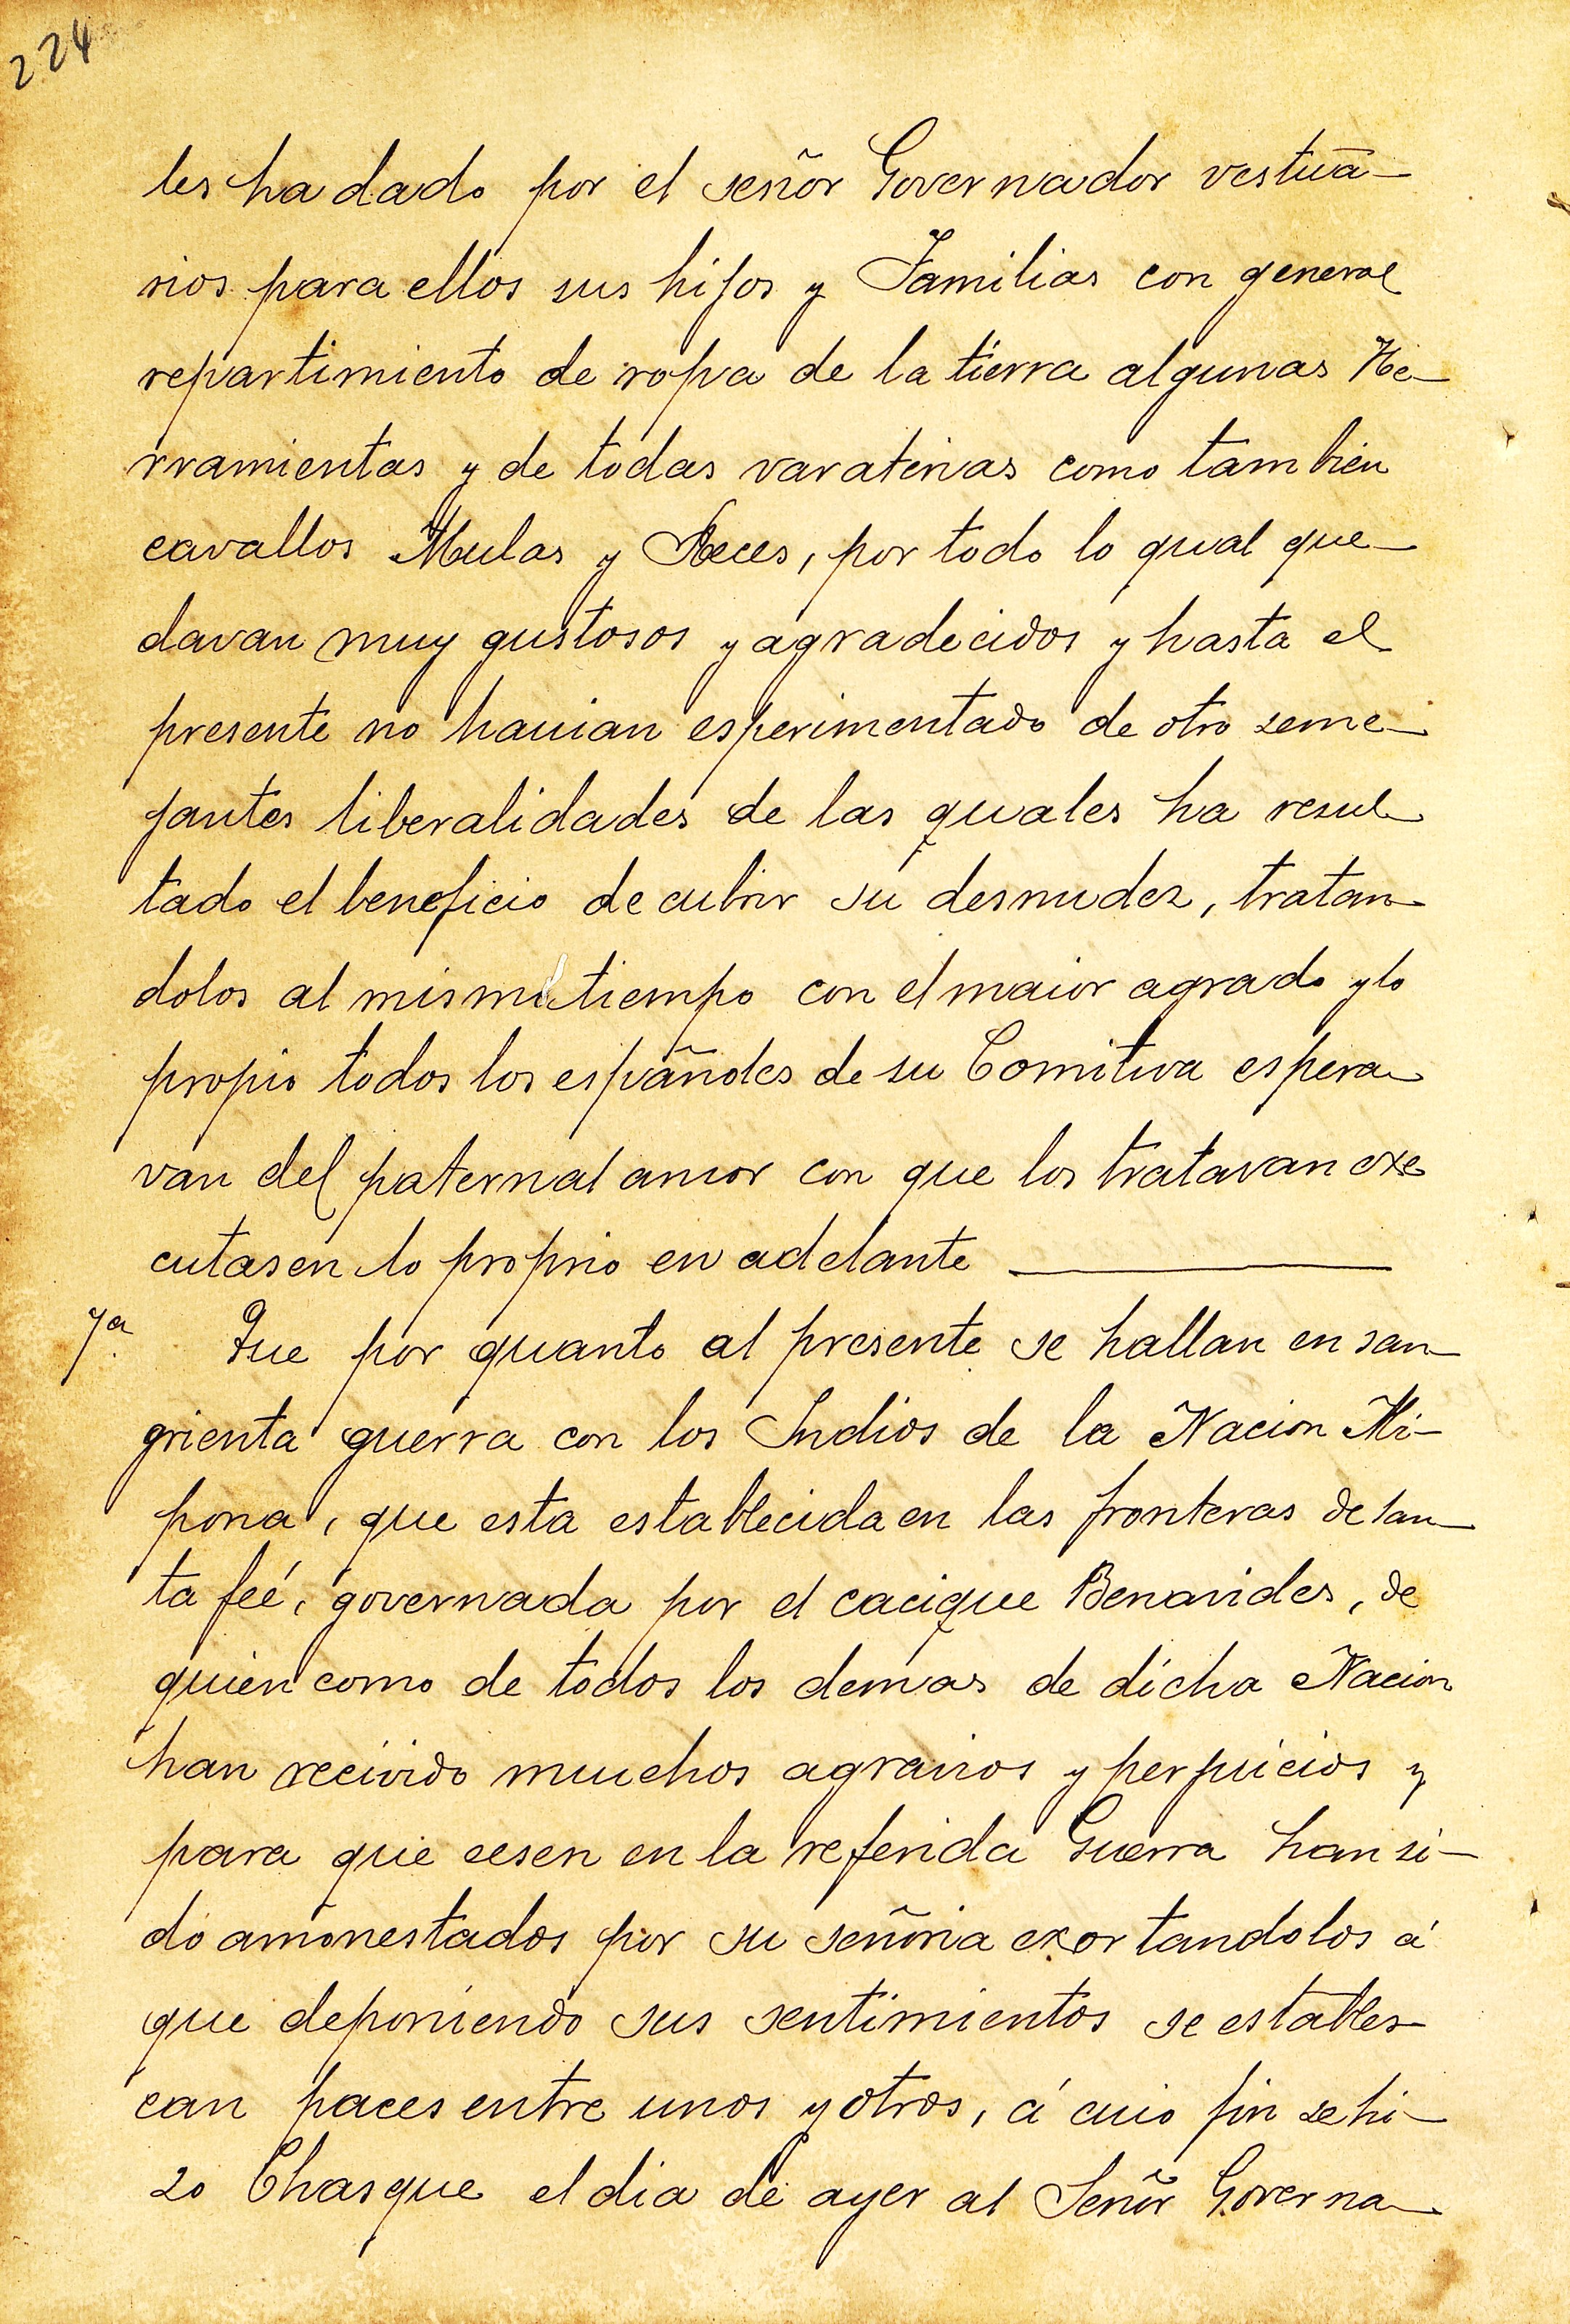 224
les ha dado por el señor Governador vestua-
rios para ellos sus hijos y Familias con general
repartimiento de ropa de la tierra algunas He-
rramientas y de todas varaterias como tambien
cavallos Mulas y Reces, por todo lo qual que-
davan muy gustosos y agradecidos y hasta el
presente no hauian esperimentado de otro seme-
jantes liberalidades de las quales ha resul-
tado el beneficio de cubrir su desnudez, tratan-
dolos al mismo tiempo con el maior agrado y lo
propio todos los españoles de su Comitiva espera-
van del paternal amor con que los tratavan exe
cutasen lo proprio en adelante
7ª. Que por quanto al presente se hallan en san-
grienta guerra con los Indios de la Nacion
pona, que esta establecida en las fronteras de san-
ta feé, governada por el cacique Benavides, de
quien como de todos los demas de dicha Nacion
han recivido muchos agravios y perjuicios y
para que cesen en la referida Guerra han si-
do amonestados por su señoria exortandolos á
que deponiendo sus sentimientos se estables-
can paces entre unos y otros, á cuio fin se hi-
zo Chasque el dia de ayer al Señor Governa-